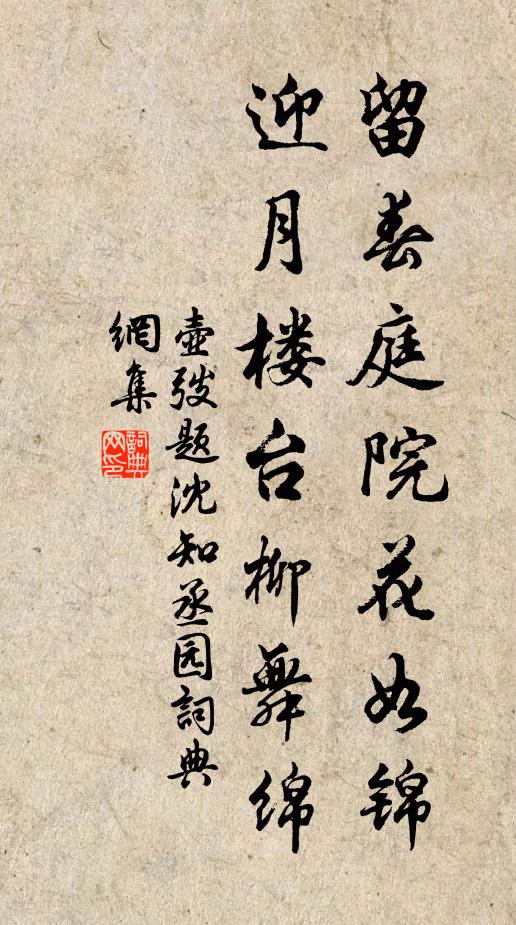 留春庭院花如锦
迎月楼台柳舞绵
壶弢题沈知丞园詞典
網集
詞典
网印